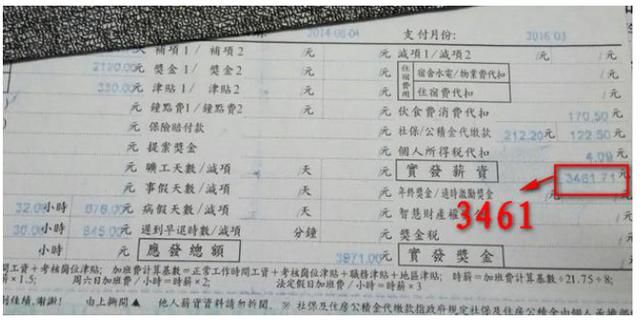 2014-06-04 支付月份: 2016 03
補項1/ 補項2 /元 元 減項1/減項2 /元 /元
2120.00元 獎金1/ 獎金2 /元 元 住宿費用 宿舍水電/物業費代扣 /元
330.00元 津貼1/ 津貼2 /元 元 住宿費代扣 /元
元 鐘點費1/鐘點費2 /元 元 伙食費消費代扣 170.50元
元 保險賠付款 元 社保/公積金代繳款 212.20元 122.50元
元 提案獎金 元 個人所得稅代扣 4.09元
元 曠工天數/減項 天 /元 實發薪資 3461.71元
元 事假天數/減項 天 /元 年終獎金/適時激勵獎金
32.00小時 676.00元 病假天數/減項 天 /元 智慧財產權 3461
30.00小時 845.00元 遲到早退時數/減項 分鐘 /元 獎金稅
小時 元 應發總額 3971.00元 實發獎金
間工資+考核崗位津貼; 加班費計算基數=正常工作時間工資+考核崗位津貼+職務津貼+地區津貼; 時薪=加班費計算基數÷21.75÷8;
×1.5; 周六日加班費/小時=時薪×2; 法定假日加班費/小時=時薪×3
創佳績,謝謝! 由上撕開▲ 他人薪資資料請勿折閱. ※ 社保及住房公積金代繳款指政府規定社保及住房公積金由個人承擔部